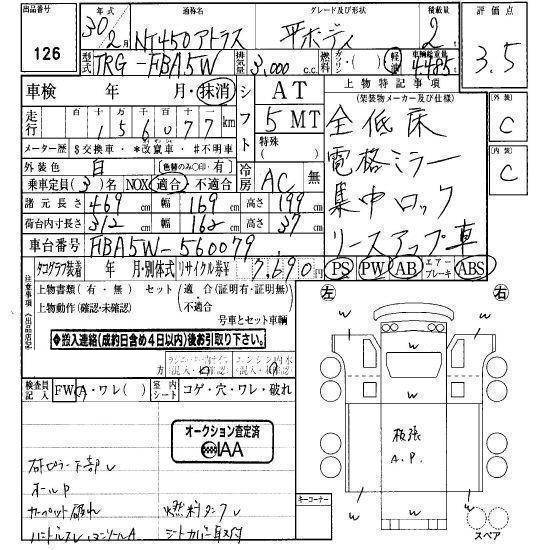 出品番号 126
年式 30年 2月
通称名 NT450アトラス
グレード及び形状 平ボディ
積載量 2t
評価点 3.5
型式 TRG-FBA5W
排気量 3,000 c.c.
燃料 ガソリン・( ) 軽油
車輌総重量 4485
車検 年 月・抹消
シフト AT 5MT
上物特記事項
(架装物メーカー及び仕様)
外装 C
走行 十 万 千 百 十 156077 km
メーター歴 $交換車・*改竄車・#不明車
特殊( )
全低床
内装 C
外装色 白 (色替のみ○印・有)
電格ミラー
乗車定員(3)名 NOX 適合 不適合
冷房 AC 無
集中ロック
諸元長さ 469 cm 幅 169 cm 高さ 199 cm
荷台内寸長さ 312 cm 幅 162 cm 高さ 37 cm
リースアップ車
車台番号 FBA5W-560079
PS PW AB エアーブレーキ ABS
タコグラフ装着 年 月・別体式 リサイクル券¥ 7,690円
注意事項(出品店記)
上物書類(有・無) セット(適合(証明有・証明無)
上物動作(確認・未確認) 不適合
号車とセット車輌
◆搬入連絡(成約日含め4日以内)後お引取り下さい。
左 右
検査員記入 FW A・ワレ( )
室内シート コゲ・穴・ワレ・破れ
オークション査定済
IAA
下部
オールP
カーペット破れ 燃料タンク
シートカバー取付
板張
A.P.
W
W
W
W
W
W
キーコーナー
スペア